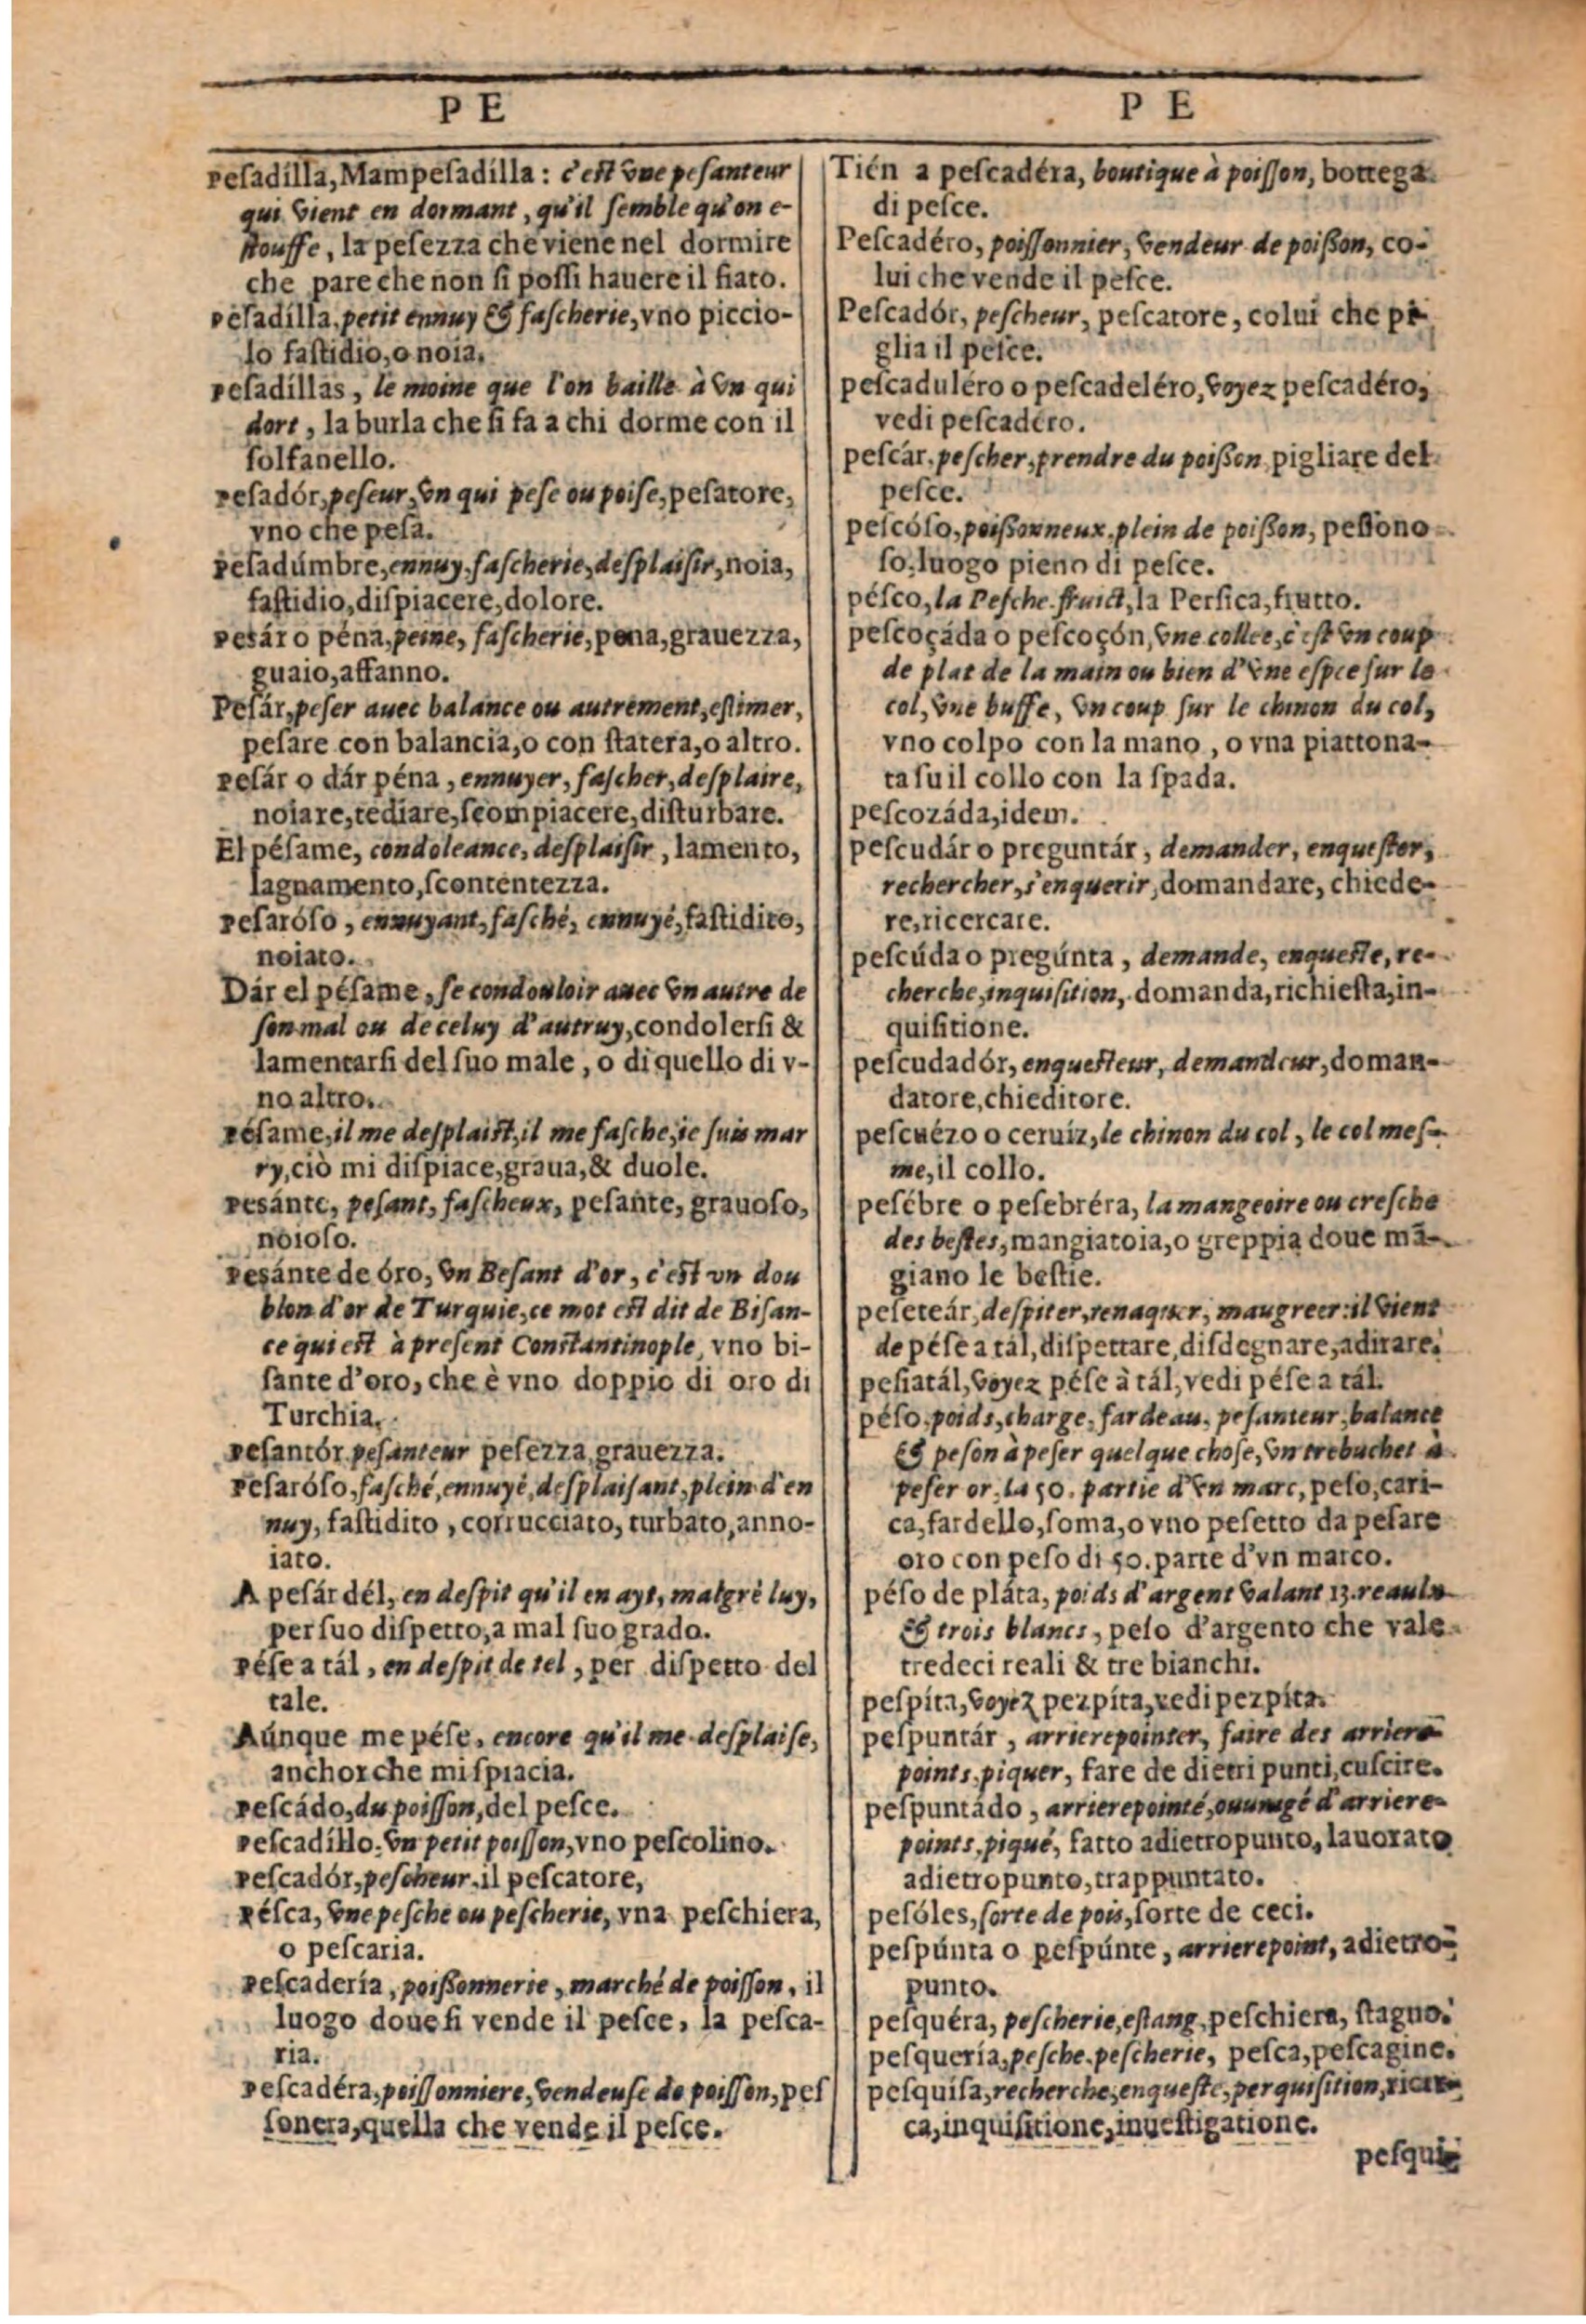 P E
peſadilla, Mampeſadilla: c'eſt vne peſanteur
qui vient en dormant, qu'il ſemble qu'on e-
ſtouffe, la peſezza che viene nel dormire
che pare che non ſi poſſi hauere il fiato.
peſadílla, petit ennuy & faſcherie, vno piccio-
lo faſtidio, o noia.
peſadíllas, le moine que l'on baille à vn qui
dort, la burla che ſi fa a chi dorme con il
ſolfanello.
peſadór, peſeur, vn qui peſe ou poiſe, peſatore,
vno che peſa.
peſadúmbre, ennuy, faſcherie, deſplaiſir, noia,
faſtidio, diſpiacere, dolore.
pesár o péna, peine, faſcherie, pena, grauezza,
guaio, affanno.
Peſár, peſer auec balance ou autrement, eſtimer,
peſare con balancia, o con ſtatera, o altro.
peſár o dár péna, ennuyer, faſcher, deſplaire,
noiare, tediare, ſcompiacere, diſturbare.
El péſame, condoleance, deſplaiſir, lamento,
lagnamento, ſcontentezza.
peſaróſo, ennuyant, faſché, ennuyé, faſtidito,
noiato.
Dár el péſame, ſe condouloir auec vn autre de
ſon mal ou de celuy d'autruy, condolerſi &
lamentarſi del ſuo male, o di quello di v-
no altro.
péſame, il me deſplaiſt, il me faſche, ie ſuis mar
ry, ciò mi diſpiace, graua, & duole.
pesánte, peſant, faſcheux, peſante, grauoſo,
noioſo.
pesánte de óro, vn Beſant d'or, c'eſt vn dou
blon d'or de Turquie, ce mot eſt dit de Biſan-
ce qui eſt à preſent Conſtantinople, vno bi-
ſante d'oro, che è vno doppio di oro di
Turchia.
peſantór peſanteur peſezza grauezza.
peſaróſo, faſché, ennuyé, deſplaiſant, plein d'en
nuy, faſtidito, corrucciato, turbato, anno-
iato.
A peſár dél, en deſpit qu'il en ayt, malgrè luy,
per ſuo diſpetto, a mal ſuo grado.
péſe a tál, en deſpit de tel, per diſpetto del
tale.
Aúnque me péſe, encore qu'il me deſplaiſe,
anchor che mi ſpiacia.
peſcádo, du poiſſon, del peſce.
peſcadíllo, vn petit poiſſon, vno peſcolino.
peſcadór, peſcheur, il peſcatore,
péſca, vne peſche ou peſcherie, vna peſchiera,
o peſcaria.
peſcadería, poiſſonnerie, marché de poiſſon, il
luogo doue ſi vende il peſce, la peſca-
ria.
peſcadéra, poiſſonniere, vendeuſe de poiſſon, peſ
ſonera, quella che vende il peſce.
P E
Tién a peſcadéra, boutique à poiſſon, bottega
di peſce.
Peſcadéro, poiſſonnier, vendeur de poiſſon, co-
lui che vende il peſce.
Peſcadór, peſcheur, peſcatore, colui che pi-
glia il peſce.
peſcaduléro o peſcadeléro, voyez peſcadéro,
vedi peſcadéro.
peſcár, peſcher, prendre du poiſſon pigliare del
peſce.
peſcóſo, poiſſonneux, plein de poiſſon, peſſono
ſo, luogo pieno di peſce.
péſco, la Peſche fruict, la Perſica, frutto.
peſcoçáda o peſcoçón, vne collee, c'eſt vn coup
de plat de la main ou bien d'vne eſpee ſur le
col, vne buffe, vn coup ſur le chinon du col,
vno colpo con la mano, o vna piattona-
ta ſu il collo con la ſpada.
peſcozáda, idem.
peſcudár o preguntár, demander, enqueſter,
rechercher, s'enquerir, domandare, chiede-
re, ricercare.
peſcúda o pregúnta, demande, enqueſte, re-
cherche, inquiſition, domanda, richieſta, in-
quiſitione.
peſcudadór, enqueſteur, demandeur, doman-
datore, chieditore.
peſcuézo o ceruíz, le chinon du col, le col meſ-
me, il collo.
peſébre o peſebréra, la mangeoire ou creſche
des beſtes, mangiatoia, o greppia doue mā-
giano le beſtie.
peſeteár, deſpiter, renaquer, maugreer: il vient
de péſe a tál, diſpettare, diſdegnare, adirare.
peſiatál, voyez péſe à tál, vedi péſe a tál.
péſo, poids, charge, fardeau, peſanteur, balance
& peſon à peſer quelque choſe, vn trebuchet à
peſer or, la 50. partie d'vn marc, peſo, cari-
ca, fardello, ſoma, o vno peſetto da peſare
oro con peſo di 50. parte d'vn marco.
péſo de pláta, poids d'argent valant 13. reaulx
& trois blancs, peſo d'argento che vale
tredeci reali & tre bianchi.
peſpíta, voyez pezpíta, vedi pezpíta.
peſpuntár, arrierepointer, faire des arriere
points, piquer, fare de dietri punti, cuſcire.
peſpuntádo, arrierepointé, ouuragé d'arriere-
points, piqué, fatto adietropunto, lauorato
adietropunto, trappuntato.
peſóles, ſorte de pois, ſorte de ceci.
peſpúnta o peſpúnte, arrierepoint, adietro-
punto.
peſquéra, peſcherie, eſtang, peſchiera, ſtagno.
peſquería, peſche, peſcherie, peſca, peſcagine.
peſquíſa, recherche, enqueſte, perquiſition, ricer-
ca, inquiſitione, inueſtigatione.
peſqui-